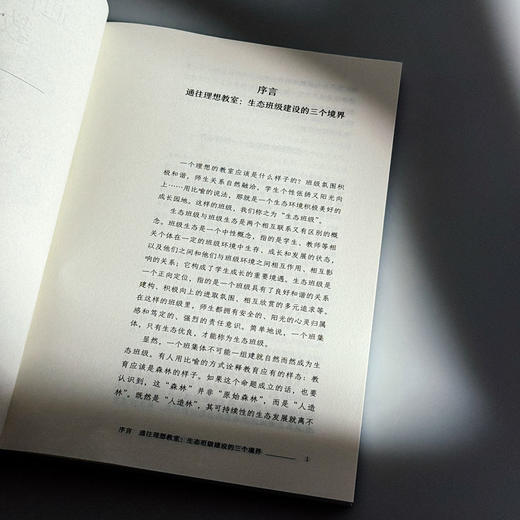 序言
通往理想教室：生态班级建设的三个境界
一个理想的教室应该是什么样子的？班级氛围积
极和谐，师生关系自然融洽，学生个性张扬又阳光向
上……用比喻的说法，那就是一个生态环境积极美好的
成长园地。这样的班级，我们称之为“生态班级”。
生态班级与班级生态是两个相互联系又有区别的概
念。班级生态是一个中性概念，指的是学生、教师等相
关个体在一定的班级环境中生存、成长和发展的状态，
以及他们之间和他们与班级环境之间相互作用、相互影
响的关系；它构成了学生成长的重要境遇。生态班级是
一个正向定位，指的是一个班级具有了良好和谐的关系
建构、积极向上的进取氛围、相互欣赏的多元追求等。
在这样的班级里，师生都拥有安全的、阳光的心灵归属
感和笃定的、强烈的责任意识。简单地说，一个班集
体，只有生态优良，才能称为生态班级。
显然，一个班集体不可能一组建就自然而然成为生
态班级。有人用比喻的方式诠释教育应有的样态：教
育应该是森林的样子。如果这个命题成立的话，也要
认识到，这“森林”并非“原始森林”，而是“人造
林”。既然是“人造林”，其可持续性的生态发展就离不
序言 通往理想教室：生态班级建设的三个境界 1